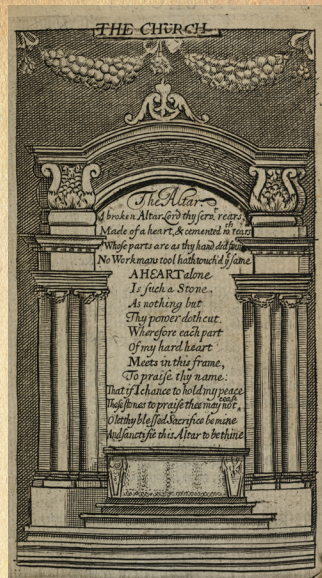 THE CHURCH
The Altar.
A broken Altar Lord thy serv.t rears,
Made of a heart, & cemented w.th tears
Whose parts are as thy hand did frame
No Workmans tool hath touch'd y.e same
A HEART alone
Is such a Stone,
As nothing but
Thy power doth cut.
Wherefore each part
Of my hard heart
Meets in this frame,
To praise thy name:
That if I chance to hold my peace
These stones to praise thee may not cease
O let thy blessed Sacrifice be mine
And sanctifie this Altar to be thine